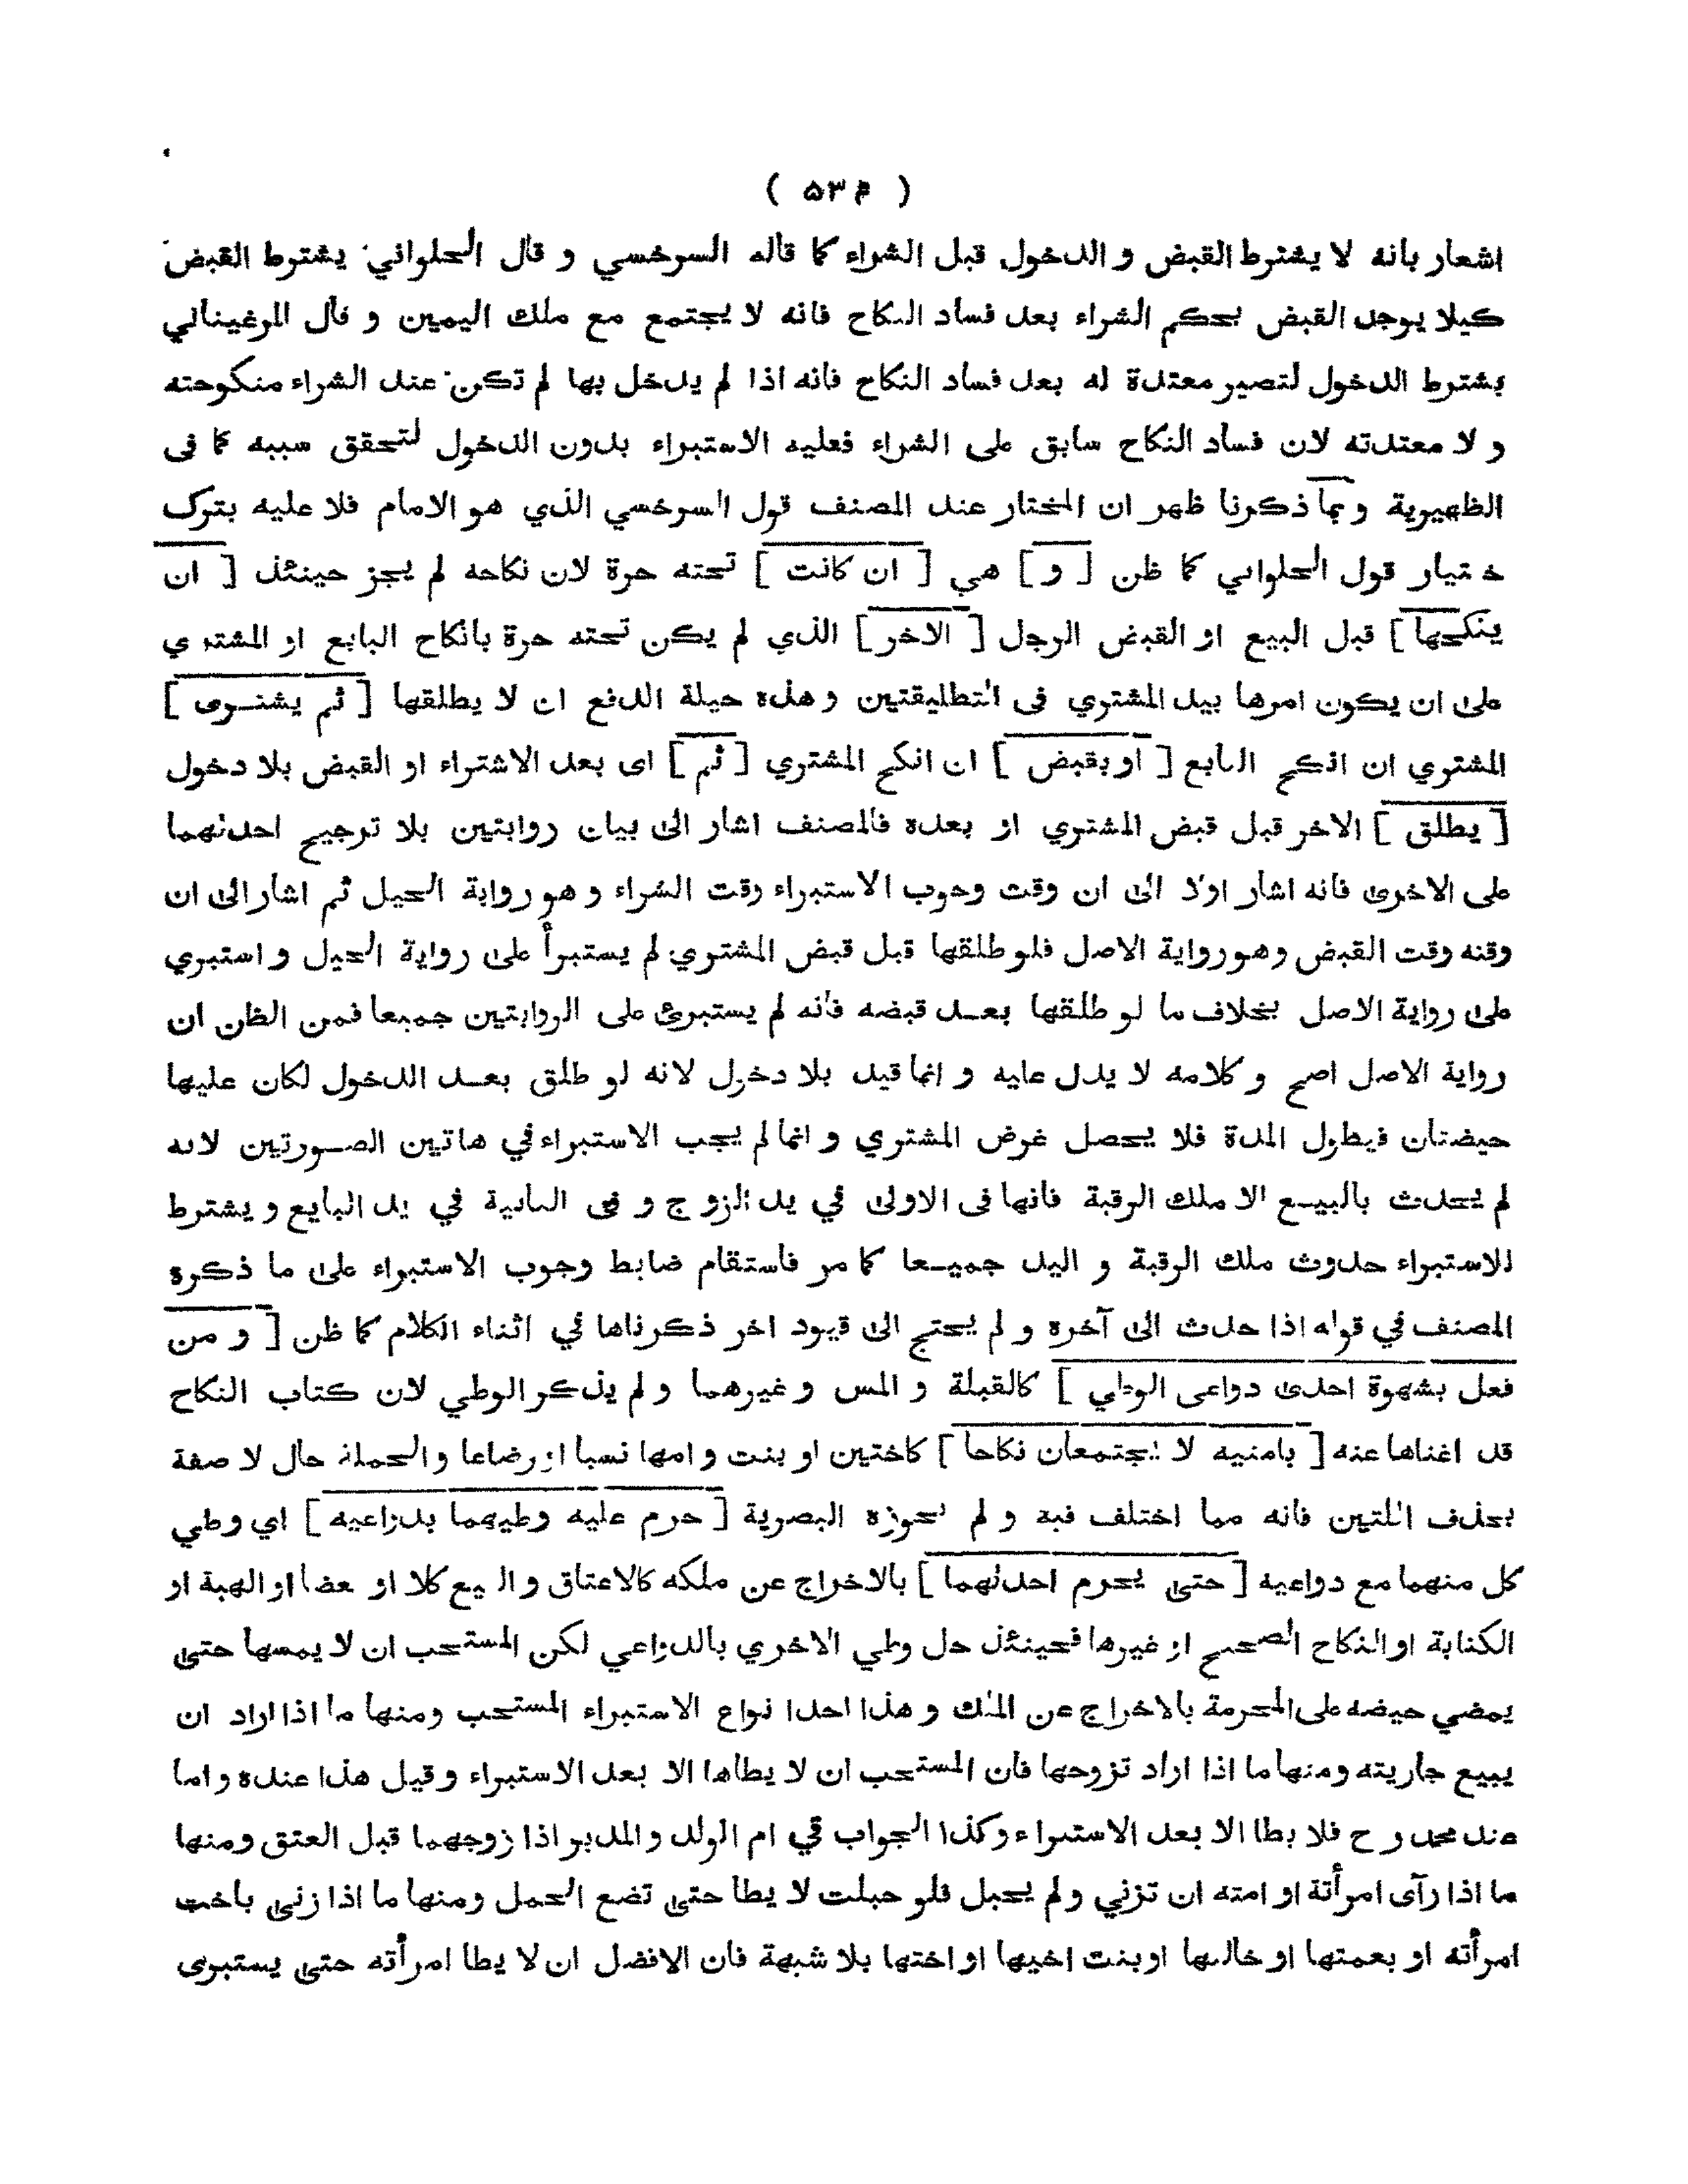 ( ۵۳۴ )
اشعار بانه لا يشترط القبض و الدخول قبل الشراء كما قاله السرخسي و قال الحلواني يشترط القبض
كيلا يوجد القبض بحكم الشراء بعد فساد النكاح فانه لا يجتمع مع ملك اليمين و قال المرغيناني
يشترط الدخول لتصير معتدة له بعد فساد النكاح فانه اذا لم يدخل بها لم تكن عند الشراء منكوحته
و لا معتدته لان فساد النكاح سابق على الشراء فعليه الاستبراء بدون الدخول لتحقق سببه كما فى
الظهيرية و بما ذكرنا ظهر ان المختار عند المصنف قول السرخسي الذي هو الامام فلا عليه بترك
ختيار قول الحلواني كما ظن [ و ] هي [ ان كانت ] تحته حرة لان نكاحه لم يجز حينئذ [ ان
ينكحها ] قبل البيع او القبض الرجل [ الاخر ] الذي لم يكن تحته حرة بانكاح البايع او المشتري
على ان يكون امرها بيد المشتري فى التطليقتين و هذه حيلة الدفع ان لا يطلقها [ ثم يشترى ]
المشتري ان انكح البايع [ او يقبض ] ان انكح المشتري [ ثم ] اى بعد الاشتراء او القبض بلا دخول
[ يطلق ] الاخر قبل قبض المشتري او بعده فالمصنف اشار الى بيان روايتين بلا ترجيح احدٰهما
على الاخرى فانه اشار اولا الى ان وقت وجوب الاستبراء وقت الشراء و هو رواية الحيل ثم اشار الى ان
وقته وقت القبض و هو رواية الاصل فلو طلقها قبل قبض المشتري لم يستبرأ على رواية الحيل و استبري
على رواية الاصل بخلاف ما لو طلقها بعد قبضه فانه لم يستبرئ على الروايتين جميعا فمن الظن ان
رواية الاصل اصح و كلامه لا يدل عليه و انما قيد بلا دخول لانه لو طلق بعد الدخول لكان عليها
حيضتان فيطول المدة فلا يحصل غرض المشتري و انما لم يجب الاستبراء في هاتين الصورتين لانه
لم يحدث بالبيع الا ملك الرقبة فانها فى الاولى في يد الزوج و فى الثانية في يد البايع و يشترط
للاستبراء حدوث ملك الرقبة و اليد جميعا كما مر فاستقام ضابط وجوب الاستبراء على ما ذكره
المصنف في قوله اذا حدث الى آخره و لم يحتج الى قيود اخر ذكرناها في اثناء الكلام كما ظن [ و من
فعل بشهوة احدى دواعى الوطي ] كالقبلة و المس و غيرهما و لم يذكر الوطي لان كتاب النكاح
قد اغناها عنه [ بامتيه لا يجتمعان نكاحا ] كاختين او بنت و امها نسبا او رضاعا و الجملة حال لا صفة
بحذف اللتين فانه مما اختلف فيه و لم يجوزه البصرية [ حرم عليه وطيهما بدواعيه ] اي وطي
كل منهما مع دواعيه [ حتى يحرم احدٰهما ] بالاخراج عن ملكه كالاعتاق و البيع كلا او بعضا او الهبة او
الكتابة او النكاح الصحيح او غيرها فحينئذ حل وطي الاخري بالدواعي لكن المستحب ان لا يمسها حتى
يمضي حيضه على المحرمة بالاخراج عن الملك و هذا احد انواع الاستبراء المستحب و منها ما اذا اراد ان
يبيع جاريته و منها ما اذا اراد تزوجها فان المستحب ان لا يطاها الا بعد الاستبراء و قيل هذا عنده و اما
عند محمد رح فلا يطا الا بعد الاستبراء و كذا الجواب في ام الولد و المدبر اذا زوجهما قبل العتق و منها
ما اذا رآى امرأته او امته ان تزني و لم يحبل فلو حبلت لا يطا حتى تضع الحمل و منها ما اذا زنى باخت
امرأته او بعمتها او خالتها او بنت اخيها او اختها بلا شبهة فان الافضل ان لا يطا امرأته حتى يستبرى